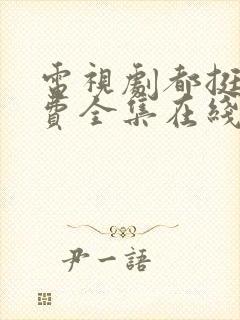 電視劇都挺
費全集在綫
尹一語